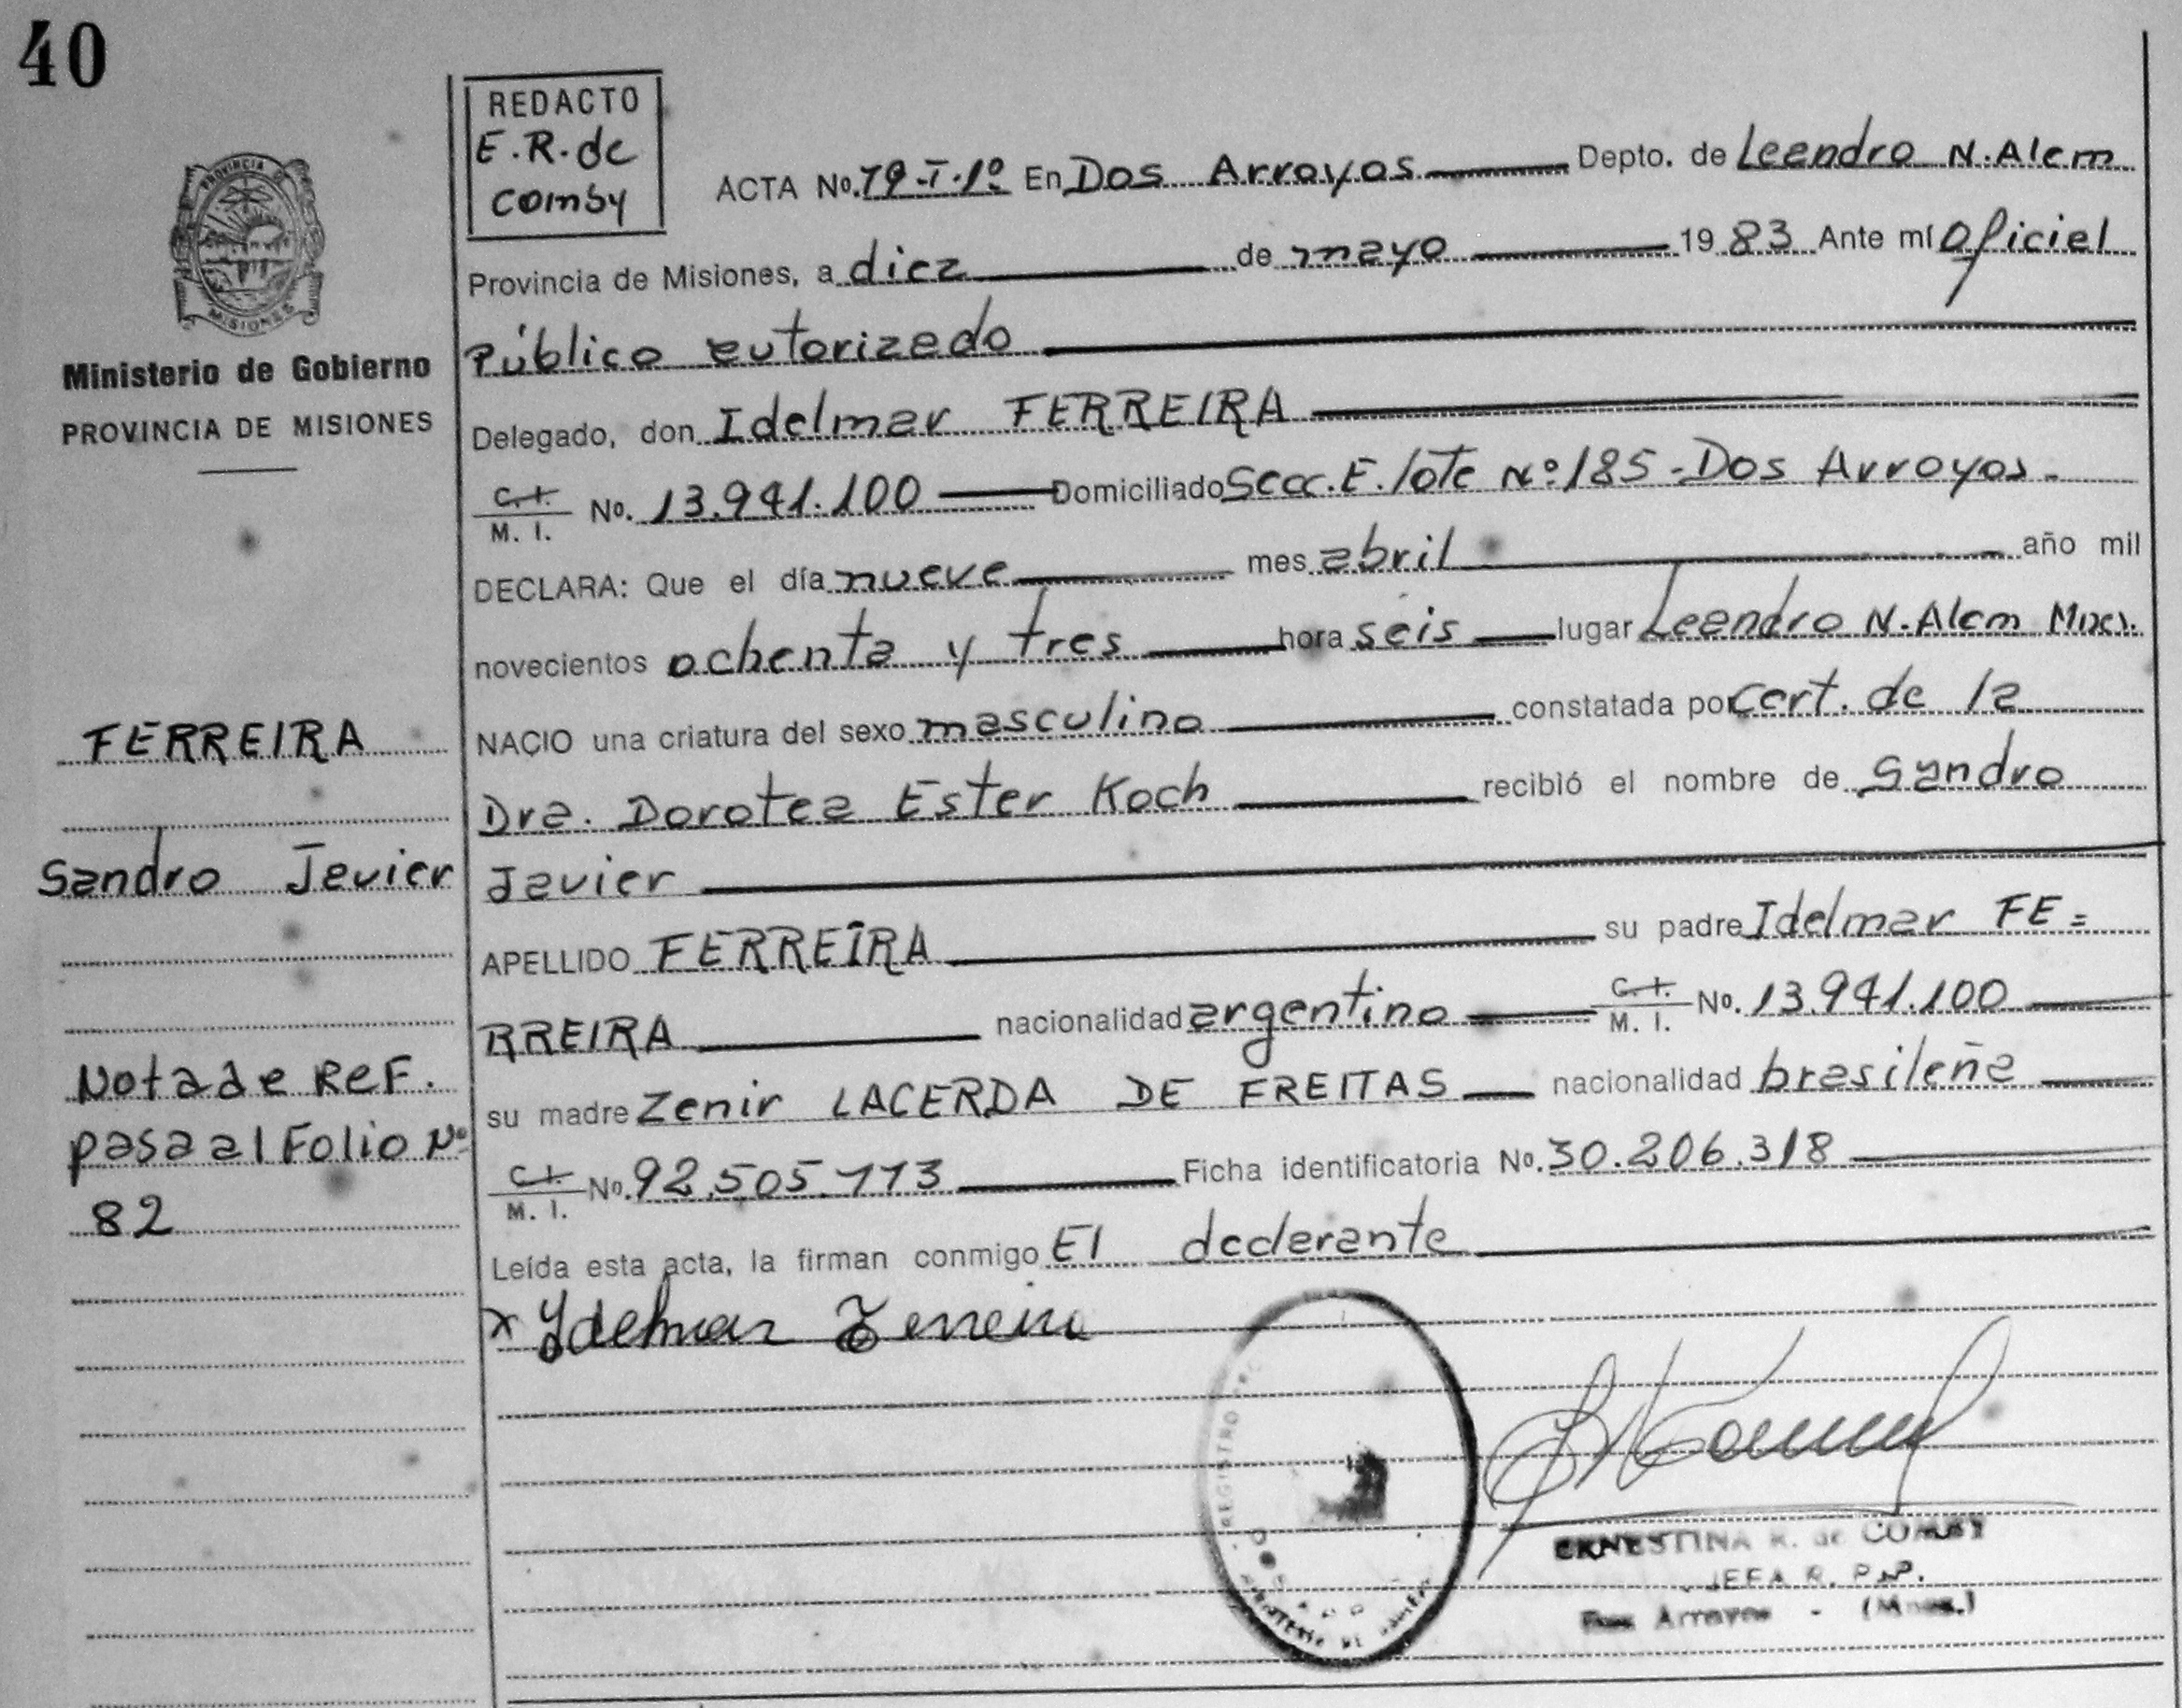 40
REDACTO
E.R. de
comby
ACTA No. 79-I-1º En Dos Arroyos Depto. de Leandro N. Alem
Provincia de Misiones, a diez de mayo 1983 Ante mí Oficial
Público autorizado
Delegado, don Idelmar FERREIRA
C.I. M. I. No. 13.941.100 Domiciliado Secc. E. lote Nº 185 - Dos Arroyos.-
DECLARA: Que el día nueve mes abril año mil
novecientos ochenta y tres hora seis lugar Leandro N. Alem Mnes.
NACIO una criatura del sexo masculino constatada por cert. de la
Dra. Dorotea Ester Koch recibió el nombre de Sandro
Javier
APELLIDO FERREIRA su padre Idelmar FE=
RREIRA nacionalidad argentino C.I. M. I. No. 13.941.100
su madre Zenir LACERDA DE FREITAS nacionalidad brasileña
C.I. M. I. No. 92.505.113 Ficha identificatoria No. 30.206.318
Leída esta acta, la firman conmigo El declarante
x Ydelmar Ferreira
ERNESTINA R. de COMBY
JEFA R. P.
Dos Arroyos - (Mnes.)
PROVINCIA DE
MISIONES
Ministerio de Gobierno
PROVINCIA DE MISIONES
FERREIRA
Sandro Javier
Nota de Ref.
pasa al Folio Nº
82
REGISTRO